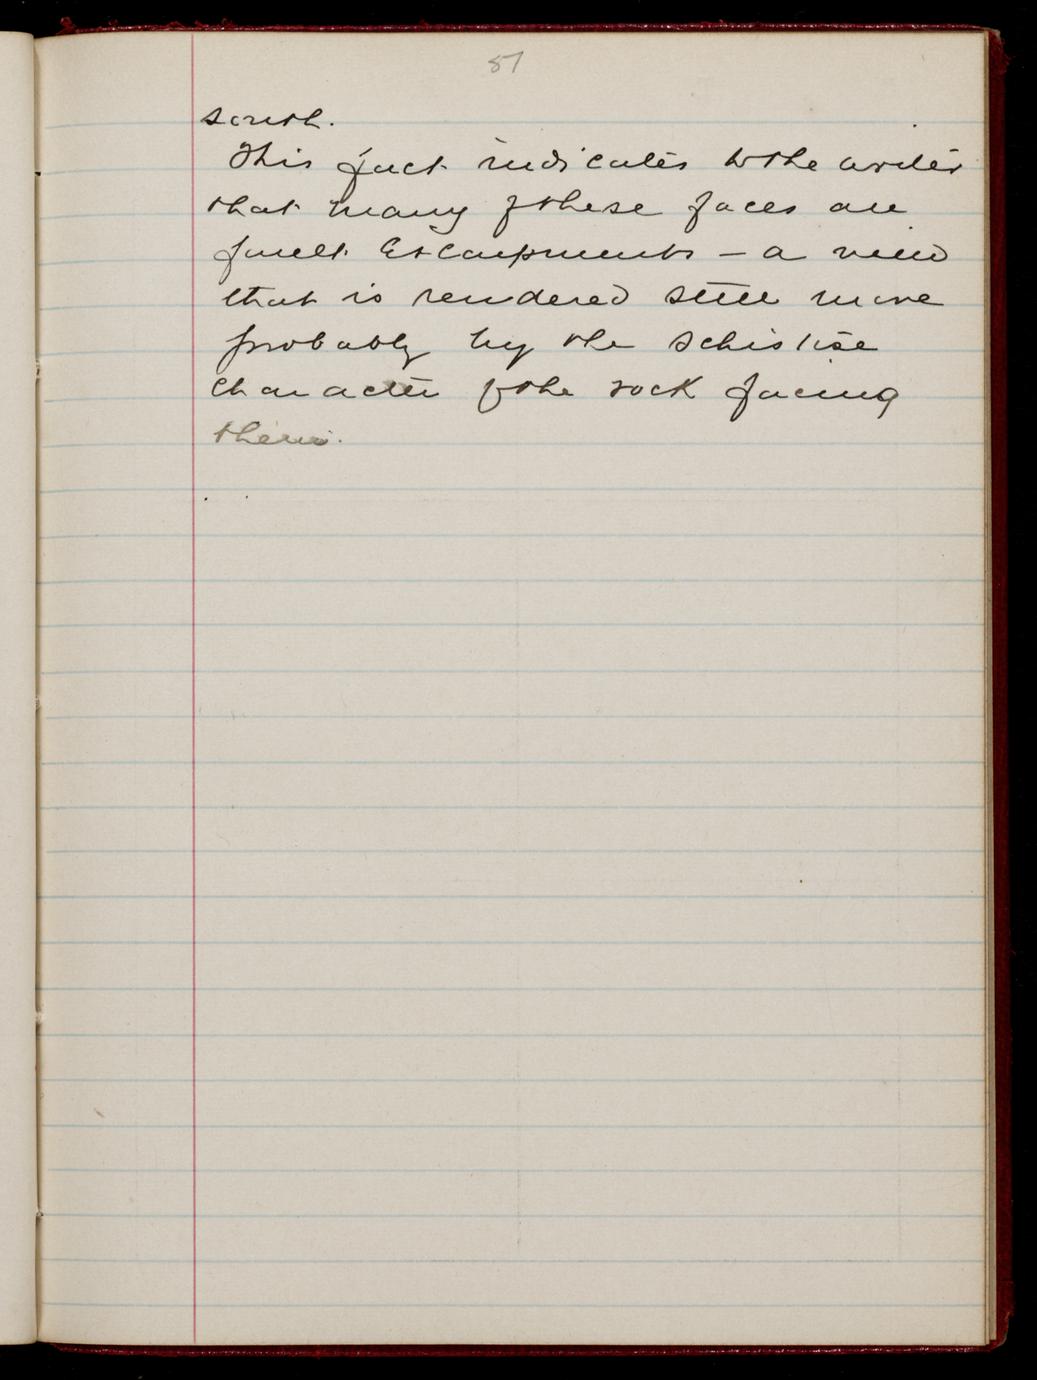 87
south.
This fact indicates to the writer
that many of these faces are
fault Escarpments – a view
that is rendered still more
probably by the schistose
character of the rock facing
them.